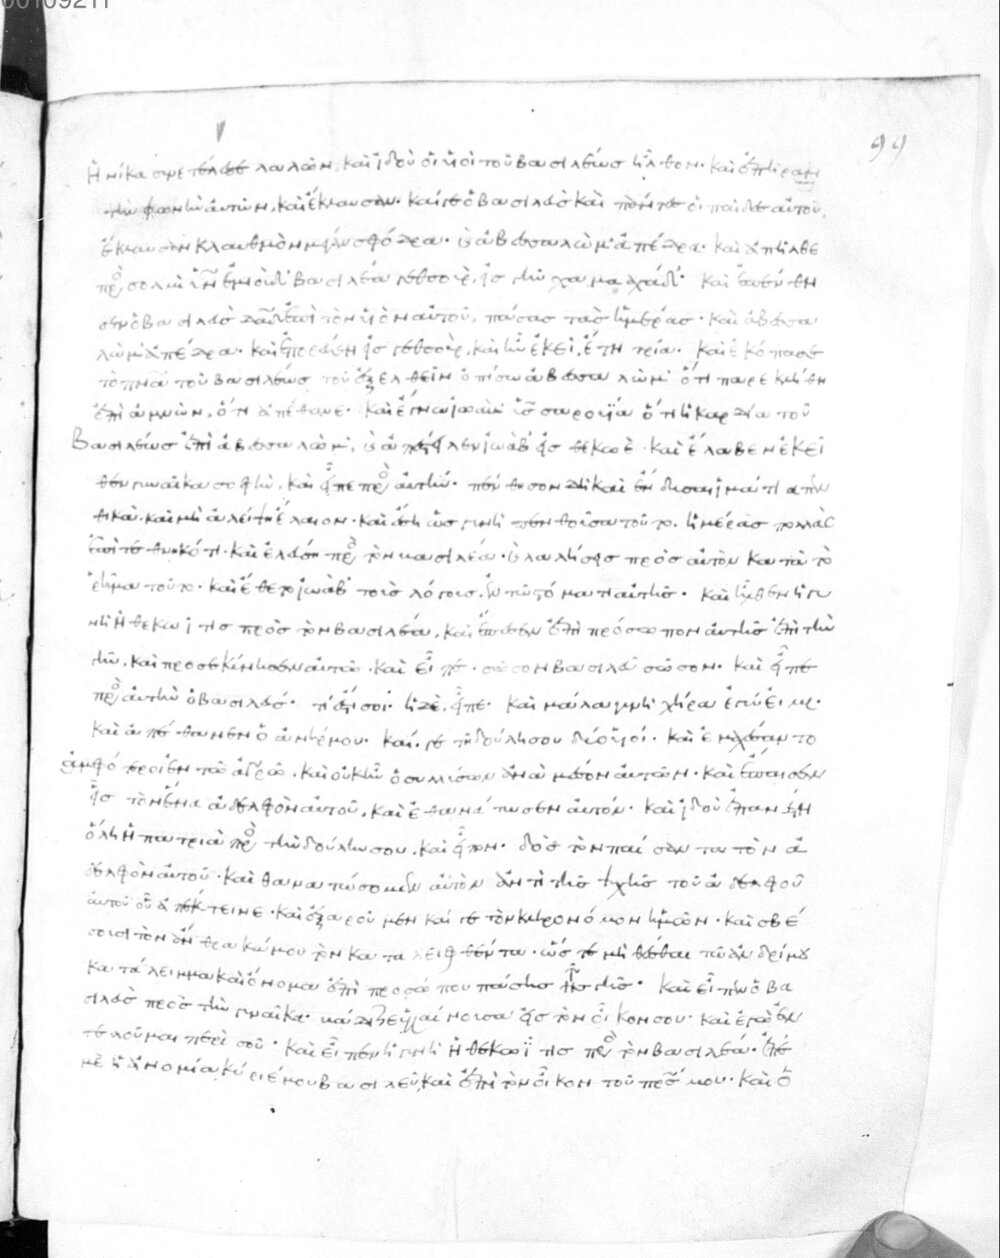 99
ἡνίκα συνετέλεσε λαλῶν, καὶ ἰδοὺ οἱ υἱοὶ τοῦ βασιλέως ἦλθον· καὶ ἐπῆραν
τὴν φωνὴν αὐτῶν, καὶ ἔκλαυσαν· καί γε ὁ βασιλεὺς καὶ πάντες οἱ παῖδες αὐτοῦ,
ἔκλαυσαν κλαυθμὸν μέγαν σφόδρα· καὶ ἀβεσσαλὼμ ἀπέδρα· καὶ ἀπῆλθε
πρὸς βασιλέα γεθσοὺρ, εἰς τὴν χαμαχάδ· καὶ ἐπένθη
σεν ὁ βασιλεὺς δαδ ἐπὶ τὸν υἱὸν αὐτοῦ, πάσας τὰς ἡμέρας· καὶ ἀβεσσα
λὼμ ἀπέδρα· καὶ ἐπορεύθη εἰς γεθσοὺρ, καὶ ἦν ἐκεῖ, ἔτη τρία. καὶ ἐκόπασε
τὸ πνα τοῦ βασιλέως τοῦ ἐξελθεῖν ὀπίσω ἀβεσσαλὼμ ὅτι παρεκλήθη
ἐπὶ ἀμνὼν, ὅτι ἀπέθανε· καὶ ἔγνω ἰωὰβ υἱὸς σαρουΐα ὅτι ἡ καρδία τοῦ
βασιλέως ἐπὶ ἀβεσσαλὼμ, καὶ ἀπέστειλεν ἰωὰβ εἰς θεκωὲ· καὶ ἔλαβεν ἐκεῖ
θεν γυναῖκα σοφὴν, καὶ εἶπε πρὸς αὐτήν· πένθησον δὴ καὶ ἔνδυσαι ἱμάτια πεν
θικὰ· καὶ μὴ ἀλείψῃ ἔλαιον· καὶ ἔσῃ ὡς γυνὴ πενθοῦσα τοῦτο ἡμέρας πολλὰς
ἐπὶ τεθνηκότι· καὶ ἐλεύσῃ πρὸς τὸν βασιλέα· καὶ λαλήσεις πρὸς αὐτὸν κατὰ τὸ
ῥῆμα τοῦτο· καὶ ἔθετο ἰωὰβ τοὺς λόγους ἐν τῷ στόματι αὐτῆς· καὶ εἰσῆλθεν ἡ γυ
νὴ ἡ θεκωῖτις πρὸς τὸν βασιλέα, καὶ ἔπεσεν ἐπὶ πρόσωπον αὐτῆς ἐπὶ τὴν
γῆν, καὶ προσεκύνησεν αὐτῷ· καὶ εἶπε· σῶσον βασιλεῦ σῶσον· καὶ εἶπε
πρὸς αὐτὴν ὁ βασιλεύς· τί ἐστί σοι· ἡ δὲ, εἶπε· καὶ μάλα γυνὴ χήρα ἐγώ εἰμι·
καὶ ἀπέθανεν ὁ ἀνήρ μου· καί γε τῇ δούλῃ σου δύο υἱοί· καὶ ἐμαχέσαντο
ἀμφότεροι ἐν τῷ ἀγρῷ· καὶ οὐκ ἦν ὁ συλλύσων ἀνὰ μέσον αὐτῶν· καὶ ἔπαισεν
εἷς τὸν ἕνα ἀδελφὸν αὐτοῦ, καὶ ἐθανάτωσεν αὐτόν· καὶ ἰδοὺ ἐπανέστη
ὅλη ἡ πατριὰ πρὸς τὴν δούλην σου, καὶ εἶπον· δὸς τὸν παίσαντα τὸν ἀ
δελφὸν αὐτοῦ· καὶ θανατώσομεν αὐτὸν ἀντὶ τῆς ψυχῆς τοῦ ἀδελφοῦ
αὐτοῦ οὗ ἀπέκτεινε· καὶ ἐξαροῦμεν καί γε τὸν κληρονόμον ἡμῶν· καὶ σβέ
σουσι τὸν ἄνθρακά μου τὸν καταλειφθέντα· ὥστε μὴ θέσθαι τῷ ἀνδρί μου
κατάλειμμα καὶ ὄνομα ἐπὶ προσώπου πάσης τῆς γῆς· καὶ εἶπεν ὁ βα
σιλεὺς πρὸς τὴν γυναῖκα· βάδιζε ὑγιαίνουσα εἰς τὸν οἶκόν σου· καὶ ἐγὼ ἐν
τελοῦμαι περὶ σοῦ· καὶ εἶπεν ἡ γυνὴ ἡ θεκωΐτις πρὸς τὸν βασιλέα· ἐπ
ἐμὲ ἡ ἀνομία κύριέ μου βασιλεῦ, καὶ ἐπὶ τὸν οἶκον τοῦ πρς μου· καὶ ὁ